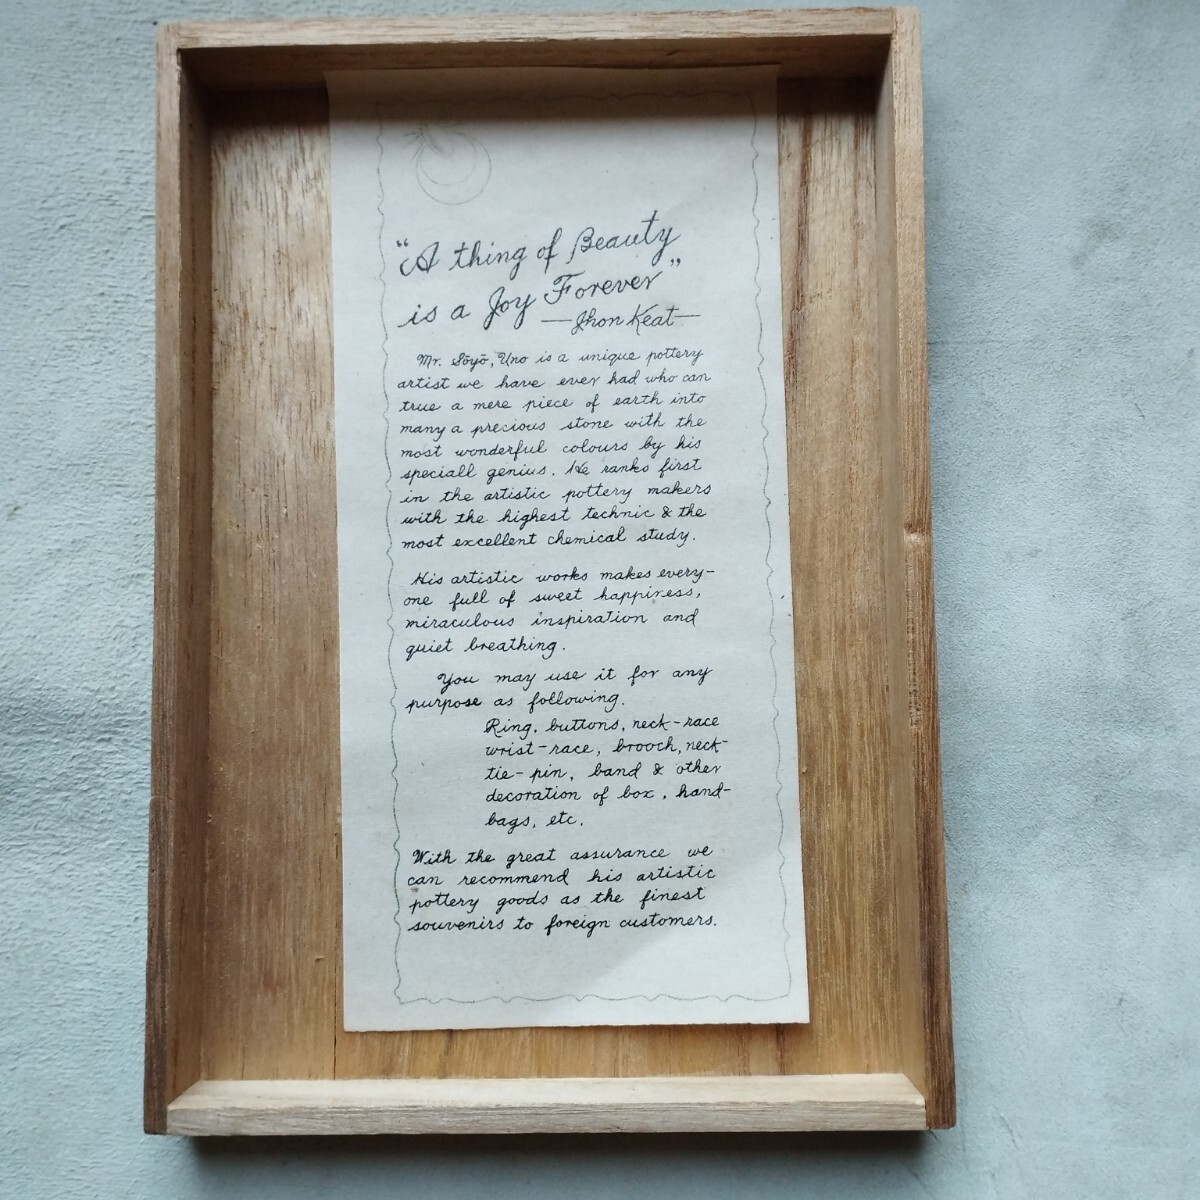 “A thing of Beauty
is a Joy Forever”
—Jhon Keat—
Mr. Sōyō, Uno is a unique pottery
artist we have ever had who can
true a mere piece of earth into
many a precious stone with the
most wonderful colours by his
speciall genius. He ranks first
in the artistic pottery makers
with the highest technic & the
most excellent chemical study.
His artistic works makes every-
one full of sweet happiness,
miraculous inspiration and
quiet breathing.
You may use it for any
purpose as following.
Ring, buttons, neck-race
wrist-race, brooch, neck-
tie-pin, band & other
decoration of box, hand-
bags, etc.
With the great assurance we
can recommend his artistic
pottery goods as the finest
souvenirs to foreign customers.